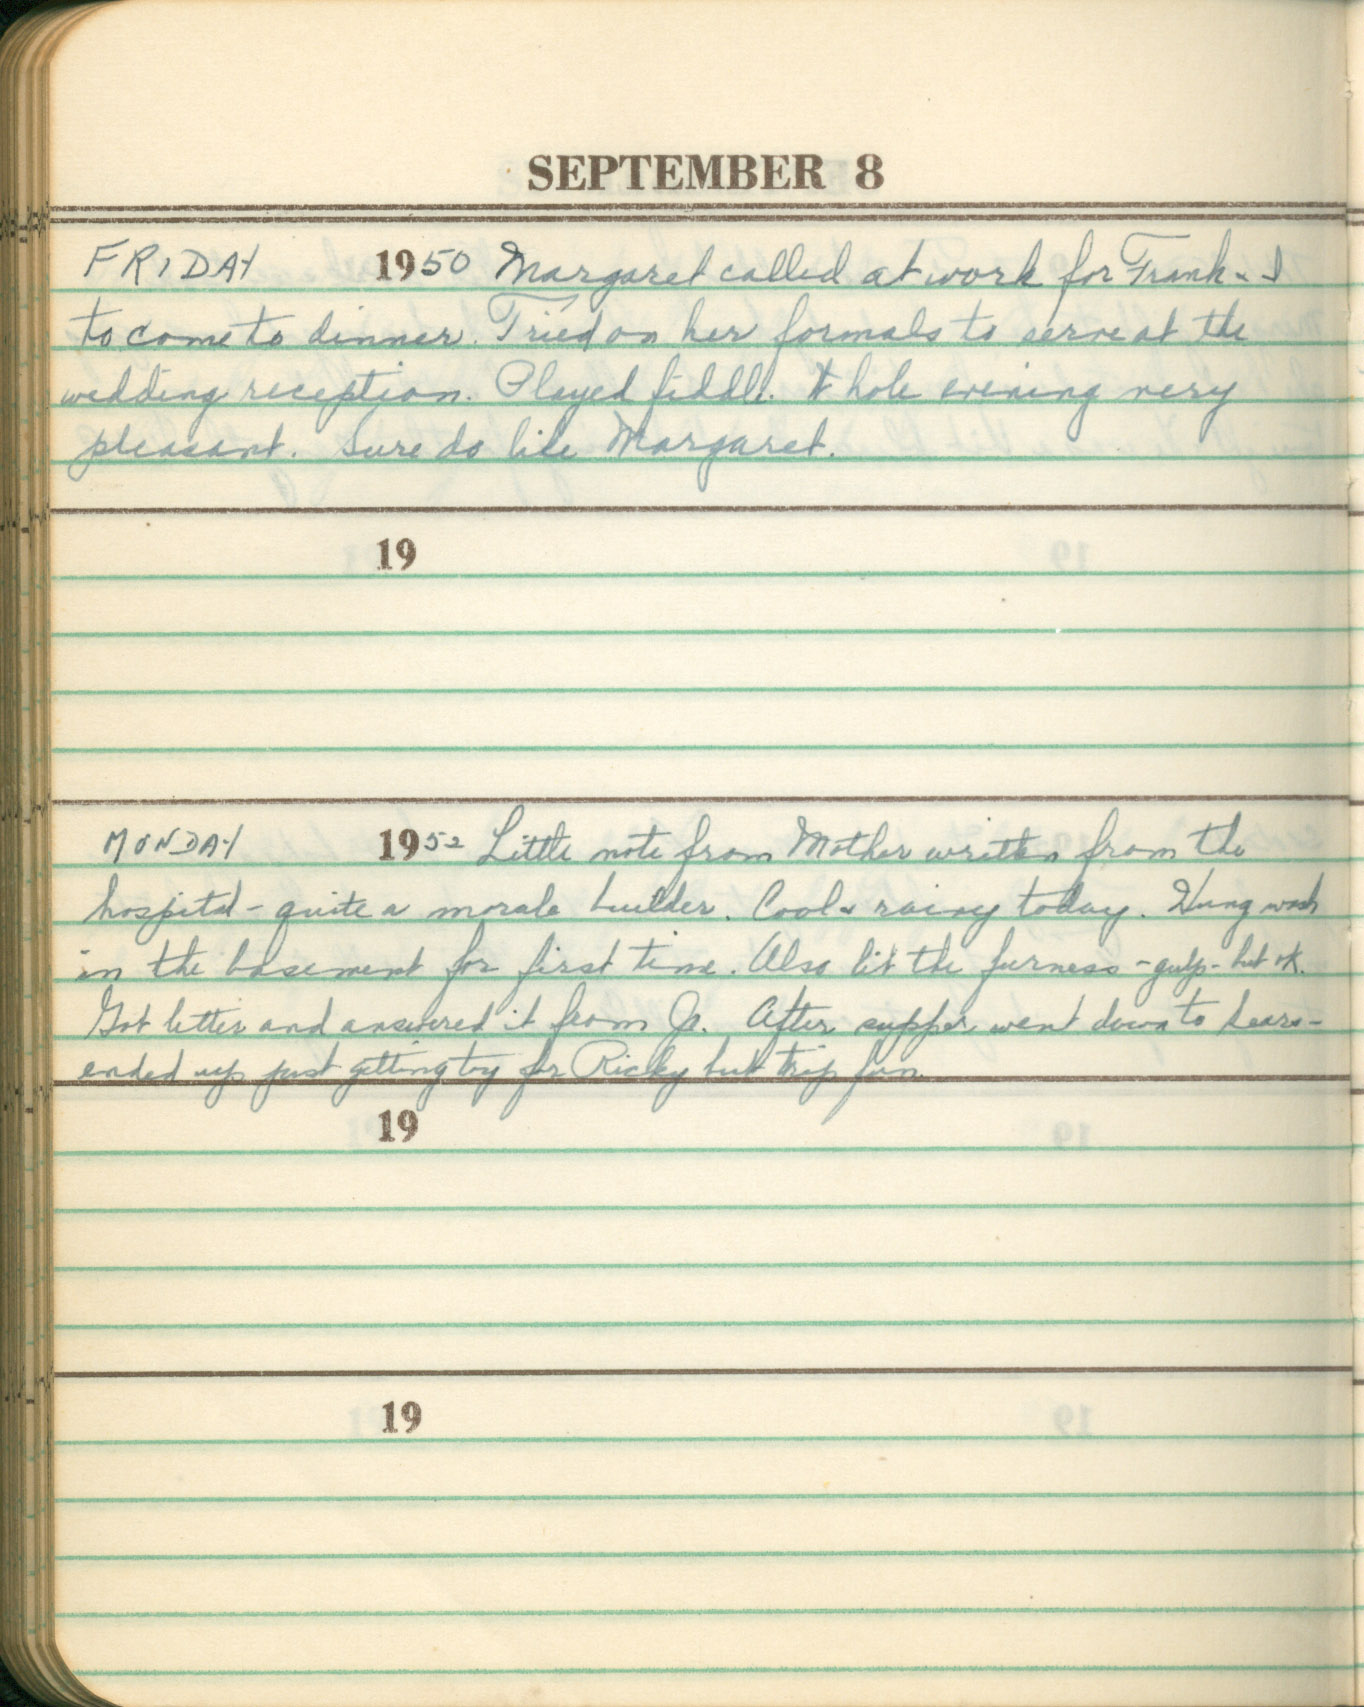 SEPTEMBER 8
FRIDAY 1950 Margaret called at work for Frank & I
to come to dinner. Tried on her formals to serve at the
wedding reception. Played fiddl. Whole evening very
pleasant. Sure do like Margaret.
19
MONDAY 1952 Little note from Mother written from the
hospital - quite a morale builder. Cool & rainy today. Hung wash
in the basement for first time. Also lit the furness - gulp - but ok.
Got letter and answered it from Jo. After supper went down to Sears -
ended up just getting toy for Ricky but trip fun.
19
19